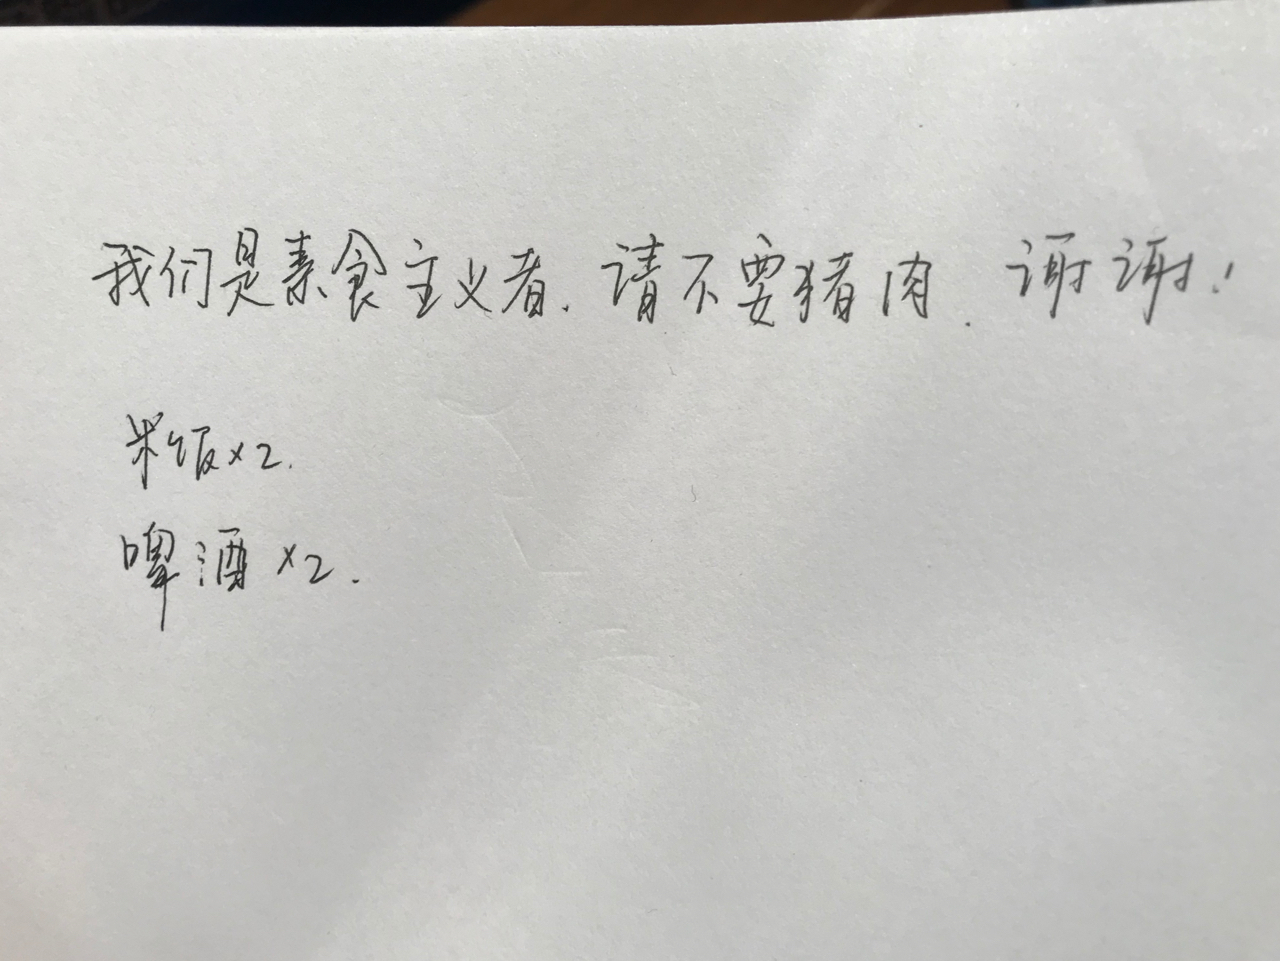 我们是素食主义者.请不要猪肉.谢谢!
米饭×2.
啤酒×2.